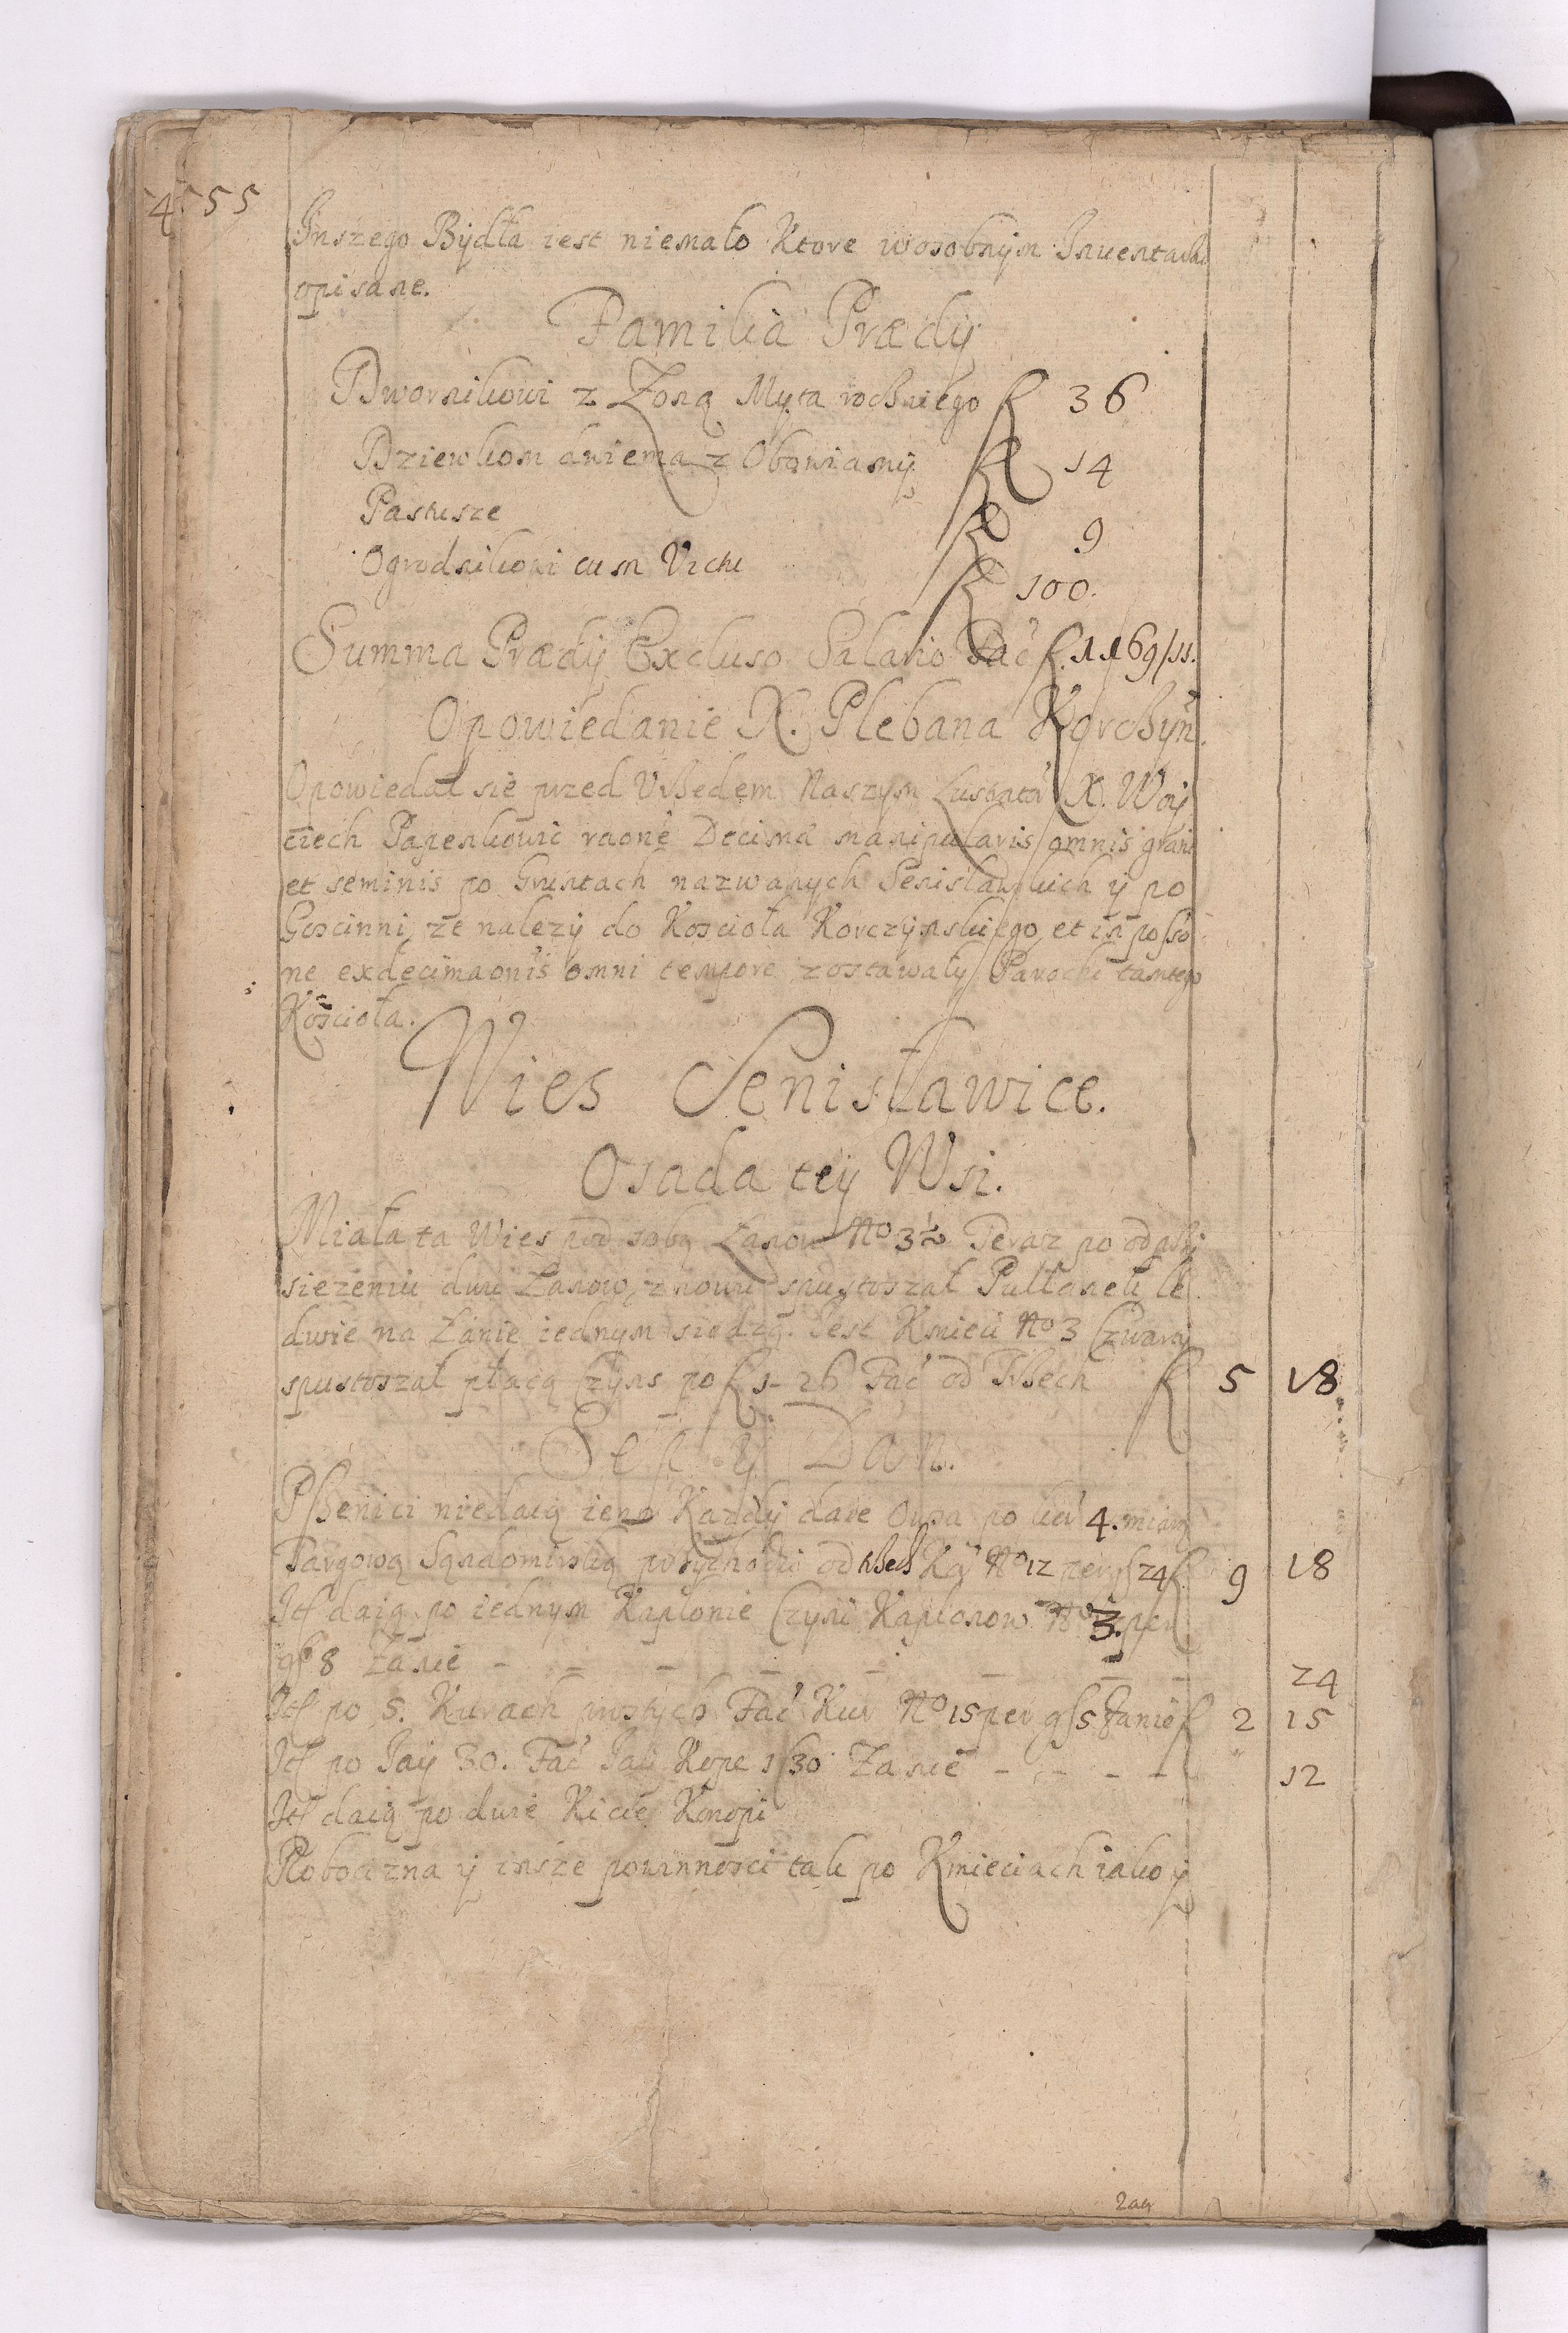 455
Inszego Bydła iest niemało Ktore wosobnym Inuentarzu
opisane.
Familia Prædij
Dwornikowi z Zoną Myta rocznego f 36
Dziewkom dwiema z Obowiamy f 14
Pastusze f 9
Ogrodnikowi cum Victu f 100.
Summa Prædij Excluso Salario Fać f. 1169/11.
Opowiedanie X. Plebana Korczyn.
Opowiedał sie przed Vrzedem Naszym Lustrator X. Woy
ciech raone Decima manipularis omnis grani
et seminis po Gruntach nazwanych Senisławskich y po
Goscinni, ze nalezy do Koscioła Korczynskiego et in posso
ne exdecimaonis omni tempore zostawały Parochi tamtego
Kościoła.
Wies Senisławice.
Osada tey Wsi.
Miała ta Wies pod sobą Łanow No 3½ Teraz po odpry
siezeniu dwu Łanow, znowu spustoszał Pułłanek le
dwie na Łanie iednym siedzą. Iest Kmieci No 3 Czwarty
spustoszał płacą Czyns po f 1-26 Fać od Trzech f 5 18
Sep y Dan.
Pszenici niedaią ieno Kazdy daie Owsa po kor 4. miary
Targową Sądomirską przychodzi od trzech No 12 per gs 24 f 9 18
Its daią po iednym Kapłonie Czyni Kapłonow No 3. per
gs 8 Zanie - - - - - - - - 24
Its po 5. Kurach prostych Fać Kur No 15 per gs 5 Zanie f 2 15
Its po Iay 30. Fać Iay Kope 1/30 Zanie - - - - 12
Its daią po dwie Kicie Konopi
Robocizna y insze powinnosci tak po Kmieciach iako y